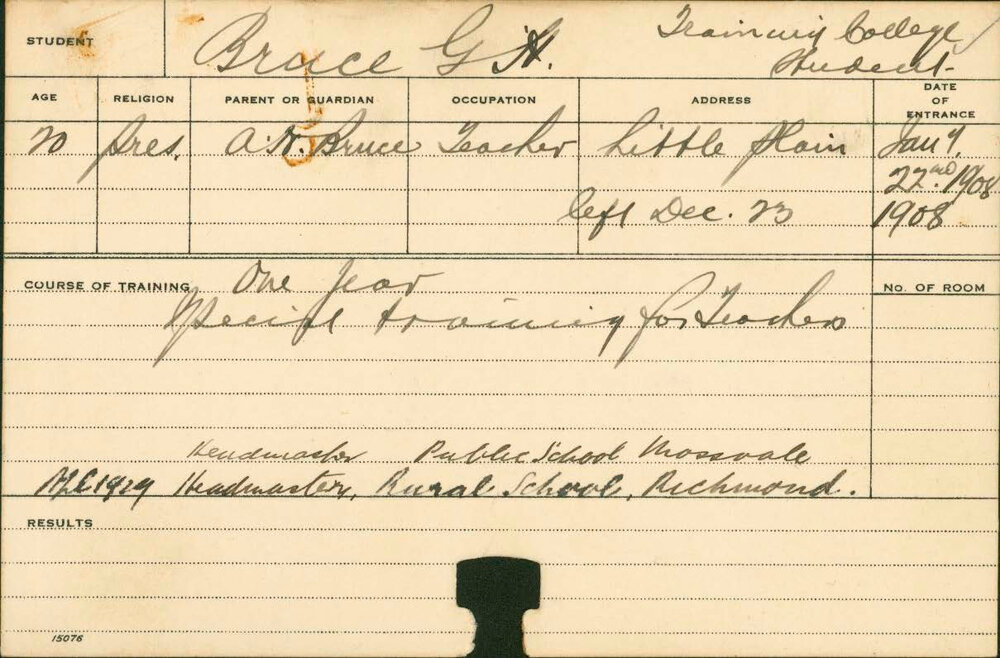 STUDENT Bruce G H. Training College
Student
AGE RELIGION PARENT OR GUARDIAN OCCUPATION ADDRESS DATE OF ENTRANCE
20 Pres. A. H. Bruce Teacher Little Plain Jany.
22nd. 1908
left Dec. 23 1908
COURSE OF TRAINING One Year No. OF ROOM
Special training for Teachers
Headmaster Public School Mossvale
1929 Headmaster, Rural School, Richmond.
RESULTS
15076